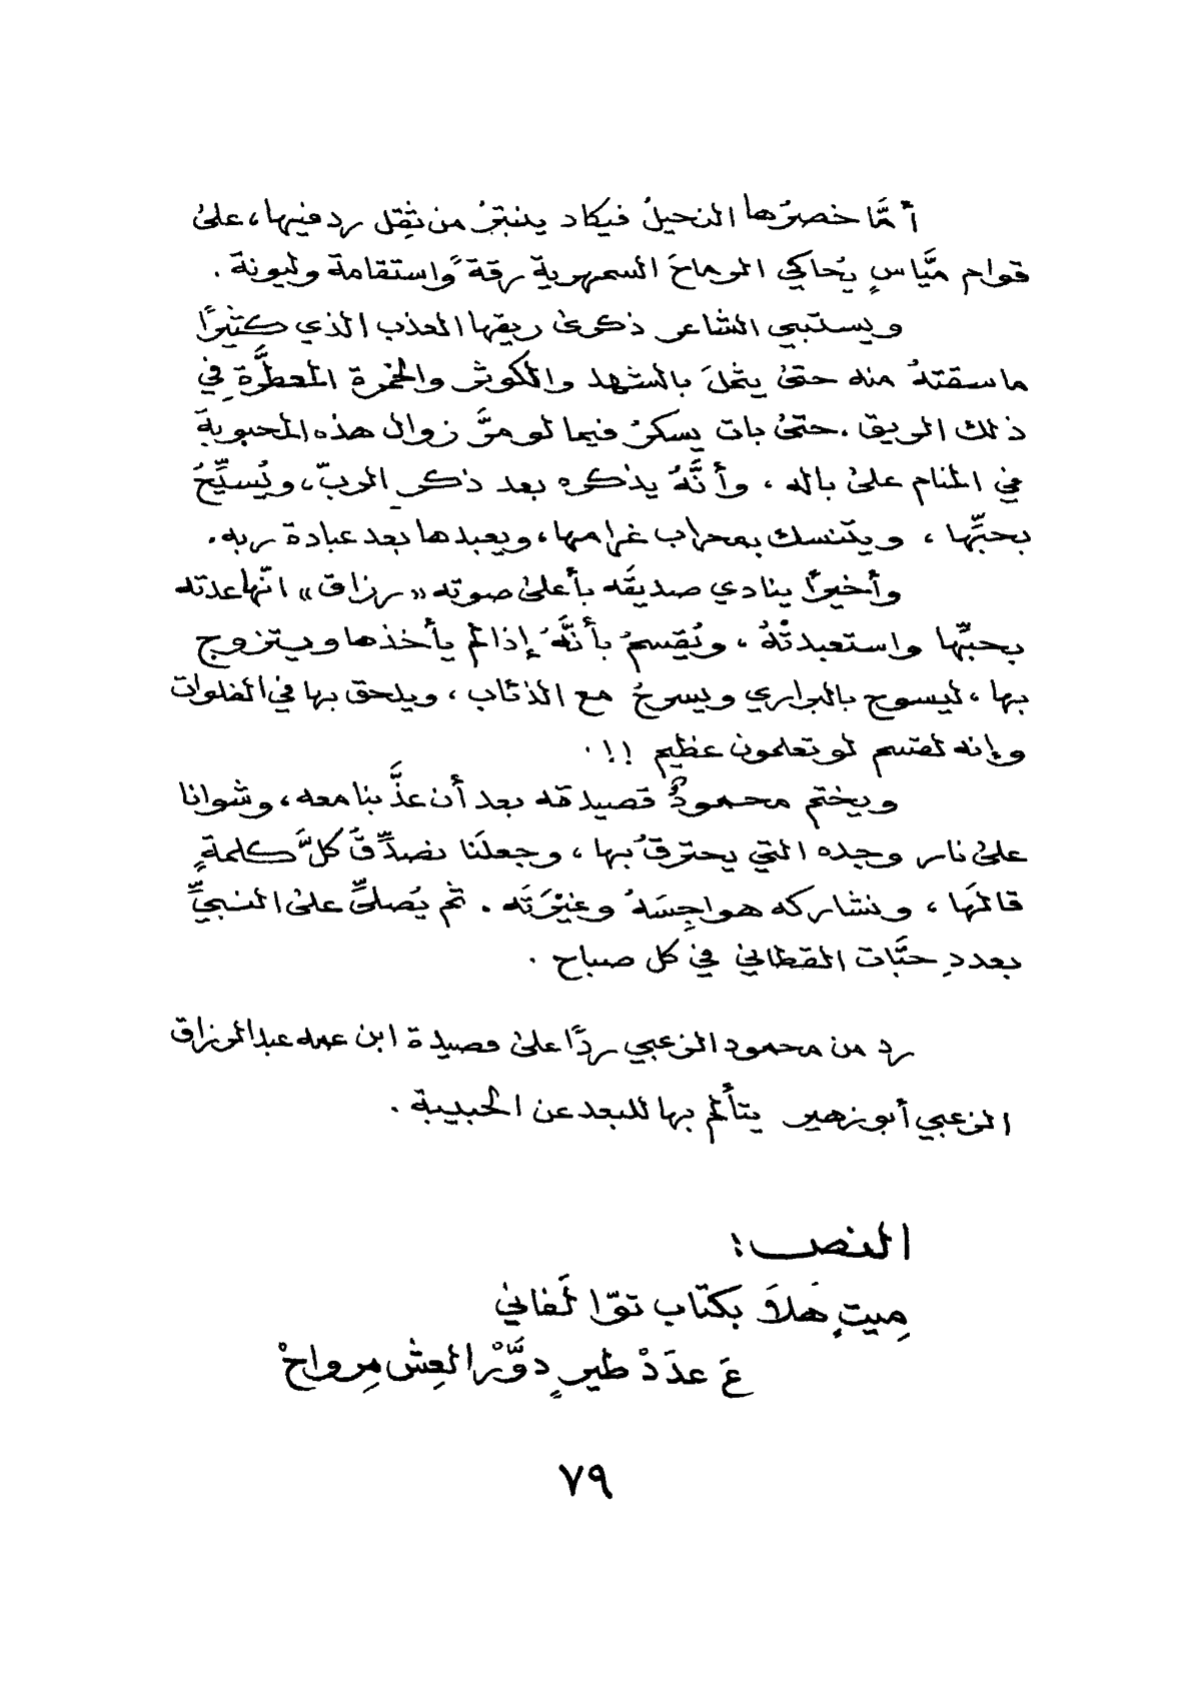 أمَّا خصرُها النحيلُ فيكاد ينبترُ من ثِقل ردفيها، على
قوام ميَّاسٍ يُحاكي الرماحَ السمهرية رقةً واستقامة وليونة .
ويستبي الشاعر ذكرى ريقها العذب الذي كثيرًا
ما سقتهُ منه حتى يثملَ بالشهد والكوثر والخمرة المعطَّرةِ في
ذلك الريق . حتى بات يسكرُ فيما لو مرَّ زوال هذه المحبوبة
في المنام على باله ، وأنَّهُ يذكره بعد ذكرِ الربّ، ويُسيِّحُ
بحبِّها ، ويتنسك بمحراب غرامها، ويعبدها بعد عبادة ربه .
وأخيرًا ينادي صديقَه بأعلى صوته «رزاق» انّها عدته
بحبِّها واستعبدتْهُ ، ويُقسمُ بأنَّهُ إذا لم يأخذها ويتزوج
بها ، ليسوح بالبراري ويسرحُ مع الذئاب ، ويلحق بها في الفلوات
وإنه لقسم لو تعلمون عظيم !! .
ويختم محمودٌ قصيدته بعد أن عذَّبنا معه ، وشوانا
على نار وجده التي يحترقُ بها ، وجعلَنا نصدِّقَ كلَّ كلمةٍ
قالَها ، ونشاركه هواجِسَهُ وغيْرَتَه . ثم يُصلِّي على النبيِّ
بعددِ حبَّات القطاني في كل صباح .
رد من محمود الزعبي ردًا على قصيدة ابن عمه عبدالرزاق
الزعبي أبو زهير يتألم بها للبعد عن الحبيبة .
النص :
مِيتٍ هَلاَ بكتاب توّا لَفاني
عَ عدَدْ طيرٍ دوَّرْ العِش مِرواحْ
٧٩